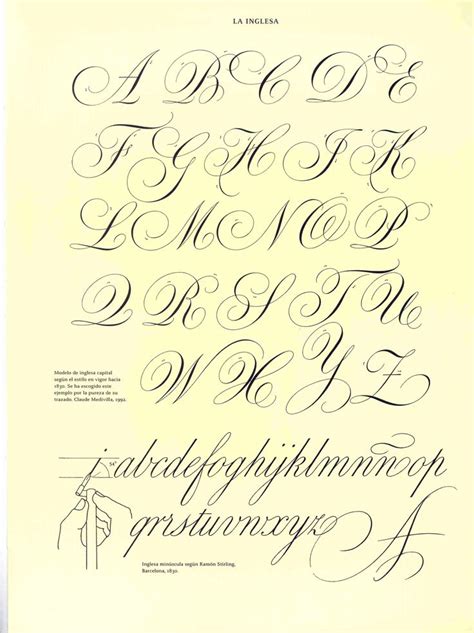 LA INGLESA
A B C D E
F G H I K
L M N O P
Q R S T U
W X Y Z
Modelo de inglesa capital
según el estilo en vigor hacia
1830. Se ha escogido este
ejemplo por la pureza de su
trazado. Claude Mediavilla, 1992.
i abcdefghijklmnñop
54°
qrstuvwxyz A
Inglesa minúscula según Ramón Stirling,
Barcelona, 1830.